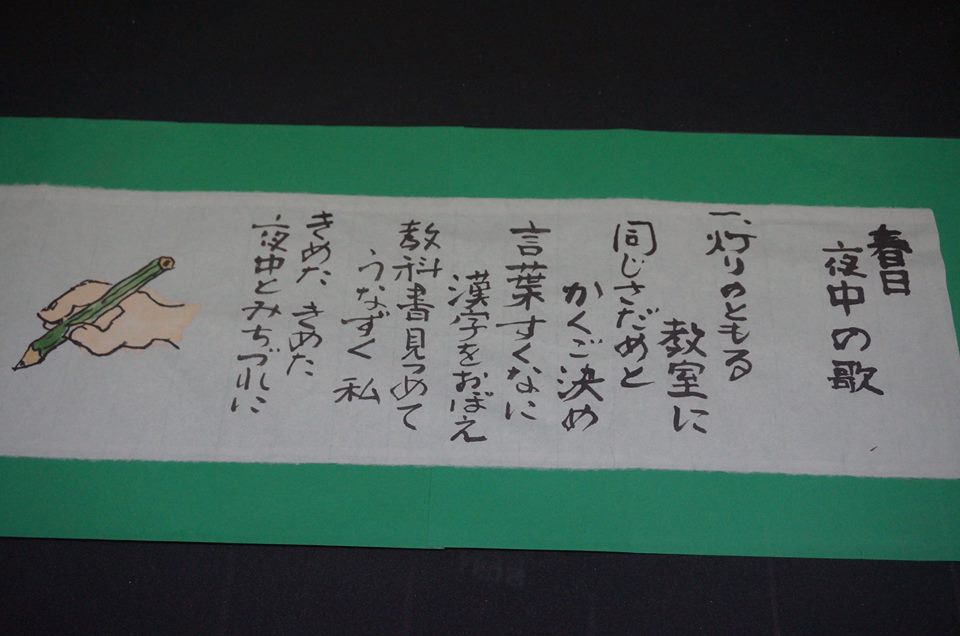 春日
夜中の歌
一、灯りのともる
教室に
同じさだめと
かくご決め
言葉すくなに
漢字をおぼえ
教科書見つめて
うなずく 私
きめた きめた
夜中とみちづれに